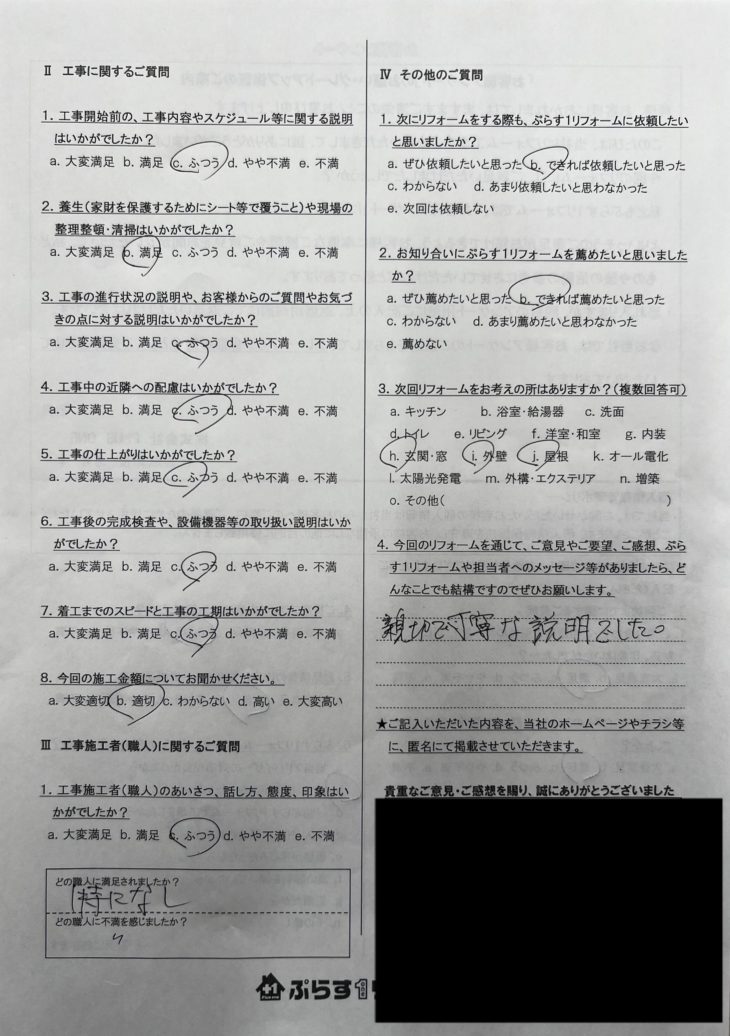 Ⅱ 工事に関するご質問
1. 工事開始前の、工事内容やスケジュール等に関する説明
はいかがでしたか？
a. 大変満足 b. 満足 c. ふつう d. やや不満 e. 不満
2. 養生(家財を保護するためにシート等で覆うこと)や現場の
整理整頓・清掃はいかがでしたか？
a. 大変満足 b. 満足 c. ふつう d. やや不満 e. 不満
3. 工事の進行状況の説明や、お客様からのご質問やお気づ
きの点に対する説明はいかがでしたか？
a. 大変満足 b. 満足 c. ふつう d. やや不満 e. 不満
4. 工事中の近隣への配慮はいかがでしたか？
a. 大変満足 b. 満足 c. ふつう d. やや不満 e. 不満
5. 工事の仕上がりはいかがでしたか？
a. 大変満足 b. 満足 c. ふつう d. やや不満 e. 不満
6. 工事後の完成検査や、設備機器等の取り扱い説明はいか
がでしたか？
a. 大変満足 b. 満足 c. ふつう d. やや不満 e. 不満
7. 着工までのスピードと工事の工期はいかがでしたか？
a. 大変満足 b. 満足 c. ふつう d. やや不満 e. 不満
8. 今回の施工金額についてお聞かせください。
a. 大変適切 b. 適切 c. わからない d. 高い e. 大変高い
Ⅲ 工事施工者(職人)に関するご質問
1. 工事施工者(職人)のあいさつ、話し方、態度、印象はい
かがでしたか？
a. 大変満足 b. 満足 c. ふつう d. やや不満 e. 不満
どの職人に満足されましたか？
特になし
どの職人に不満を感じましたか？
〃
Ⅳ その他のご質問
1. 次にリフォームをする際も、ぷらす1リフォームに依頼したい
と思いましたか？
a. ぜひ依頼したいと思った b. できれば依頼したいと思った
c. わからない d. あまり依頼したいと思わなかった
e. 次回は依頼しない
2. お知り合いにぷらす1リフォームを薦めたいと思いました
か？
a. ぜひ薦めたいと思った b. できれば薦めたいと思った
c. わからない d. あまり薦めたいと思わなかった
e. 薦めない
3. 次回リフォームをお考えの所はありますか？(複数回答可)
a. キッチン b. 浴室・給湯器 c. 洗面
d. トイレ e. リビング f. 洋室・和室 g. 内装
h. 玄関・窓 i. 外壁 j. 屋根 k. オール電化
l. 太陽光発電 m. 外構・エクステリア n. 増築
o. その他( )
4. 今回のリフォームを通じて、ご意見やご要望、ご感想、ぷら
す1リフォームや担当者へのメッセージ等がありましたら、ど
んなことでも結構ですのでぜひお願いします。
親切で丁寧な説明でした。
★ご記入いただいた内容を、当社のホームページやチラシ等
に、匿名にて掲載させていただきます。
貴重なご意見・ご感想を賜り、誠にありがとうございました
+1 ぷらす1